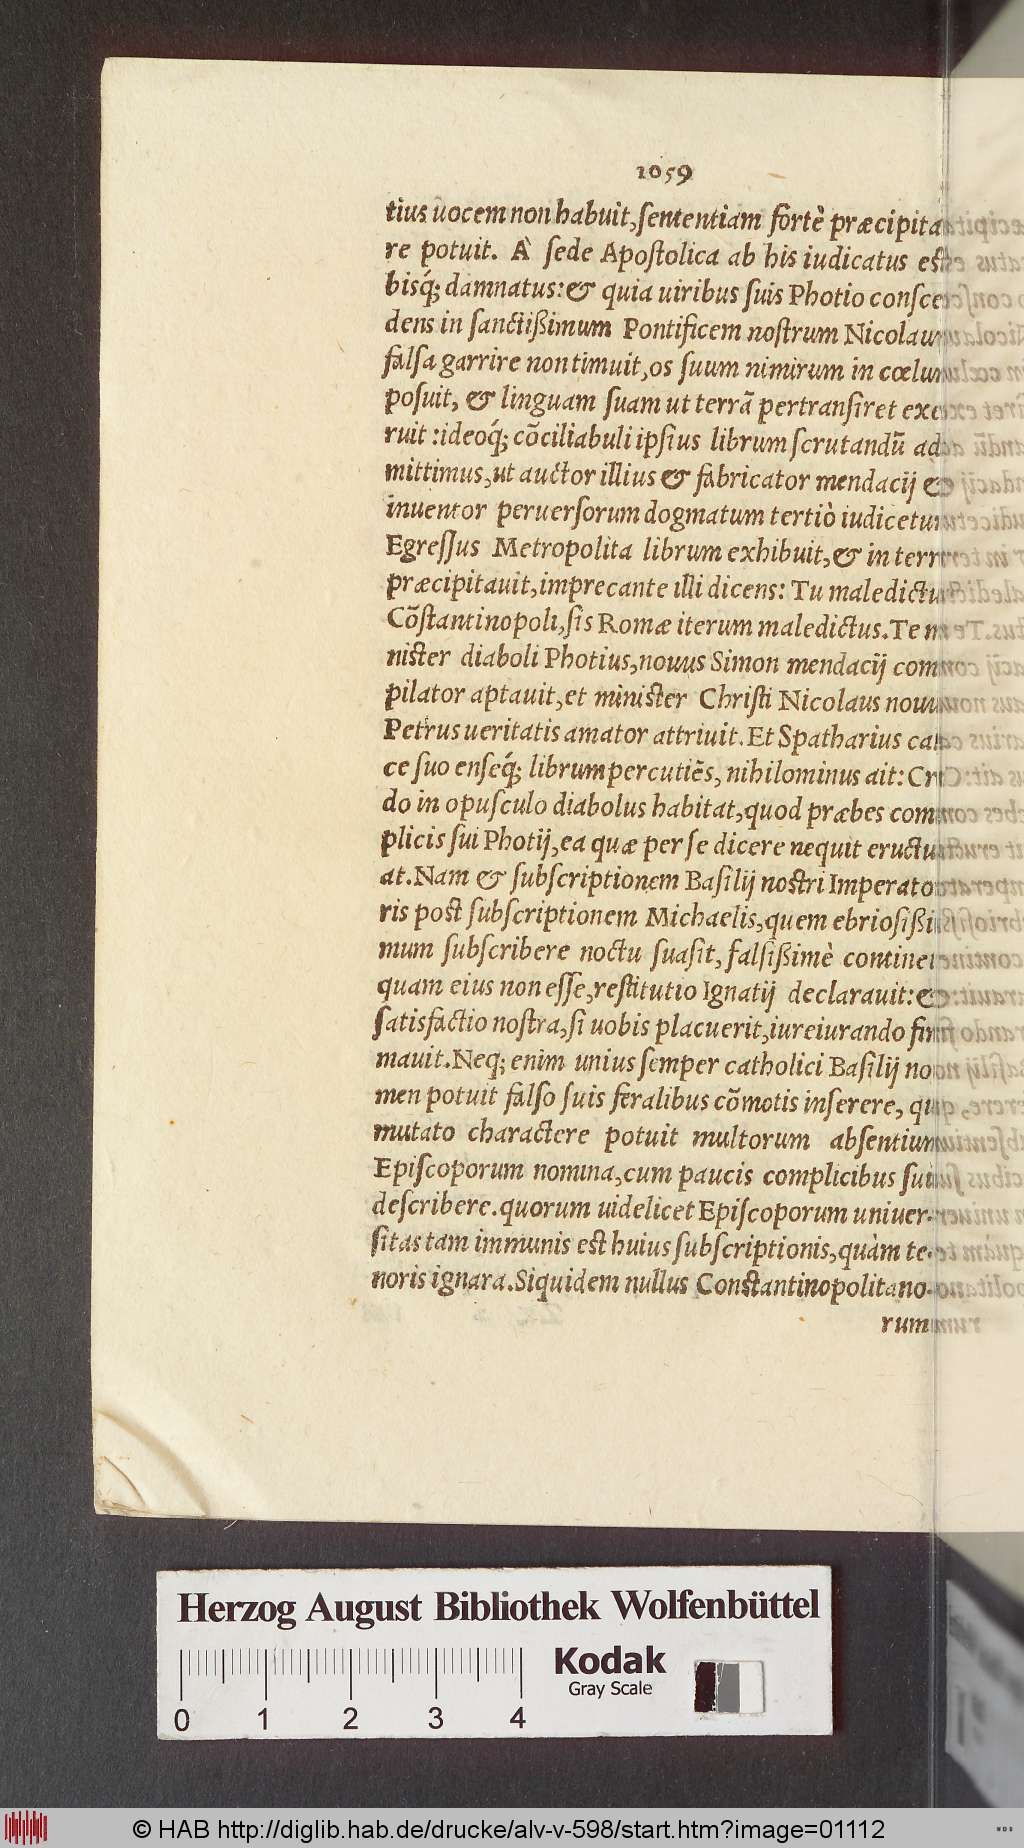 1059
tius uocem non habuit, ſententiam fortè præcipita
re potuit. À ſede Apoſtolica ab his iudicatus eſt
bisq́; damnatus: & quia uiribus ſuis Photio conſcen
dens in ſanctißimum Pontificem noſtrum Nicolaum
falſa garrire non timuit, os ſuum nimirum in cœlum
poſuit, & linguam ſuam ut terrã pertranſiret exe
ruit: ideoq́; cõciliabuli ipſius librum ſcrutandũ ad
mittimus, ut auctor illius & fabricator mendacij &
inuentor peruerſorum dogmatum tertiò iudicetur
Egreſſus Metropolita librum exhibuit, & in terram
præcipitauit, imprecante illi dicens: Tu maledictus
Cõſtantinopoli, ſis Romæ iterum maledictus. Te mi
niſter diaboli Photius, nouus Simon mendacij com
pilator aptauit, et miniſter Chriſti Nicolaus nouus
Petrus ueritatis amator attriuit. Et Spatharius cal
ce ſuo enſeq́; librum percutiẽs, nihilominus ait: Cre
do in opuſculo diabolus habitat, quod præbes com
plicis ſui Photij, ea quæ per ſe dicere nequit eructu
at. Nam & ſubſcriptionem Baſilij noſtri Imperato
ris poſt ſubſcriptionem Michaelis, quem ebrioſißi
mum ſubſcribere noctu ſuaſit, falſißimè continet
quam eius non eſſe, reſtitutio Ignatij declarauit: &
ſatisfactio noſtra, ſi uobis placuerit, iureiurando fir
mauit. Neq; enim unius ſemper catholici Baſilij no
men potuit falſo ſuis feralibus cõmotis inſerere, qui
mutato charactere potuit multorum abſentium
Epiſcoporum nomina, cum paucis complicibus ſuis
deſcribere. quorum uidelicet Epiſcoporum uniuer-
ſitas tam immunis eſt huius ſubſcriptionis, quàm te-
noris ignara. Siquidem nullus Conſtantinopolitano-
rum
Herzog August Bibliothek Wolfenbüttel
Kodak
Gray Scale
0 1 2 3 4
© HAB http://diglib.hab.de/drucke/alv-v-598/start.htm?image=01112